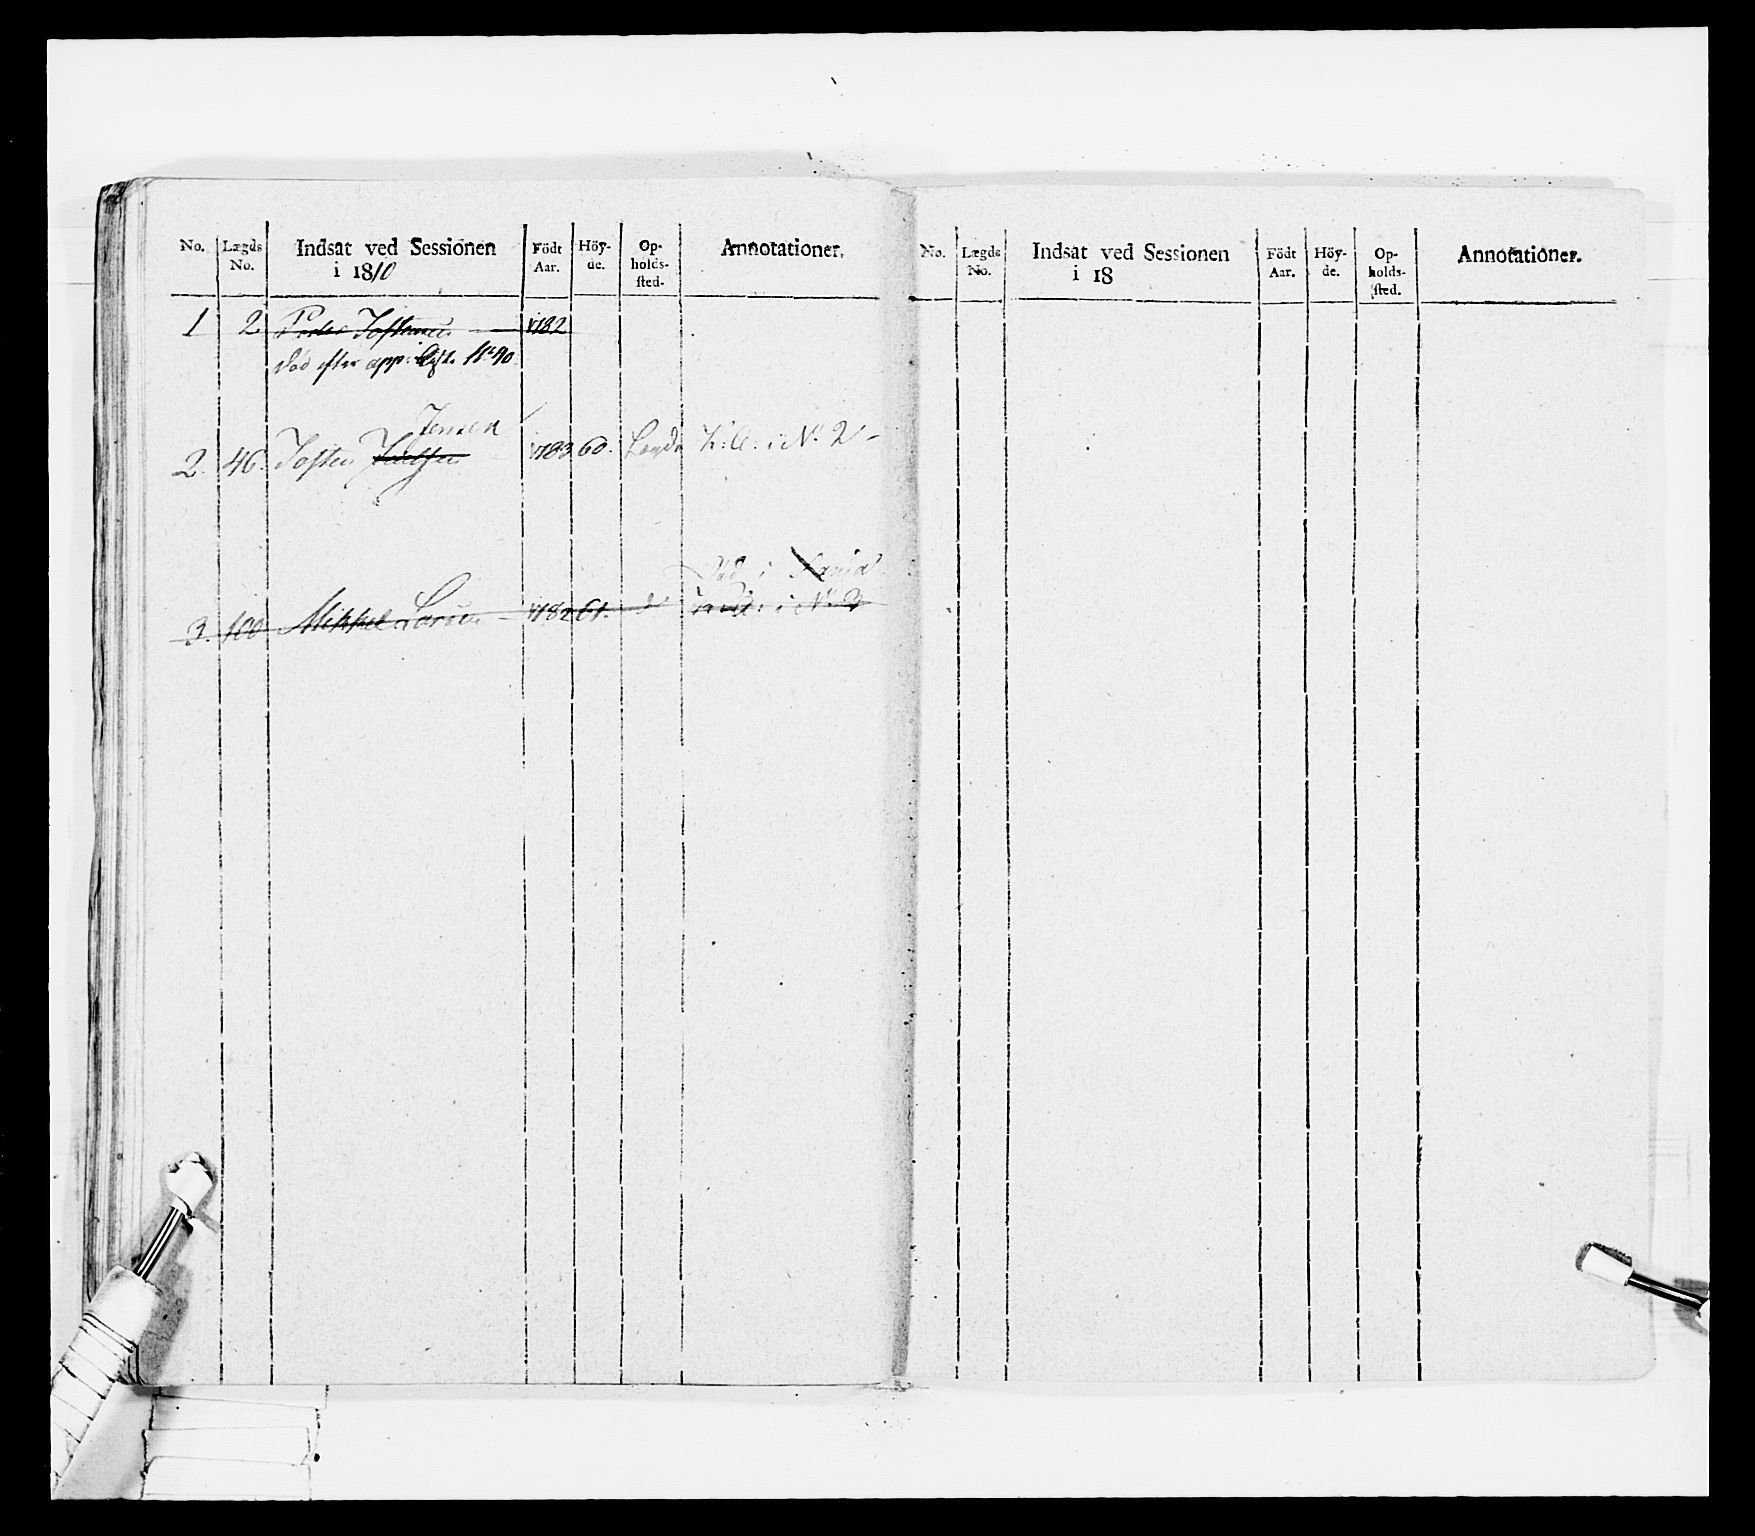 No. Lægds No. Indsat ved Sessionen i 1810 Födt Aar. Höy-de. Op-holds-sted. Annotationer.
1 2 Peder Jostensen 1782
død efter app: No 40
Jensen
2. 46. Josten 1783 60. i No 2
Död i
3. 100 Mikkel Larsen 1782 61. do i No 3
No. Lægds No. Indsat ved Sessionen i 18 Födt Aar. Höy-de. Op-holds-sted. Annotationer.